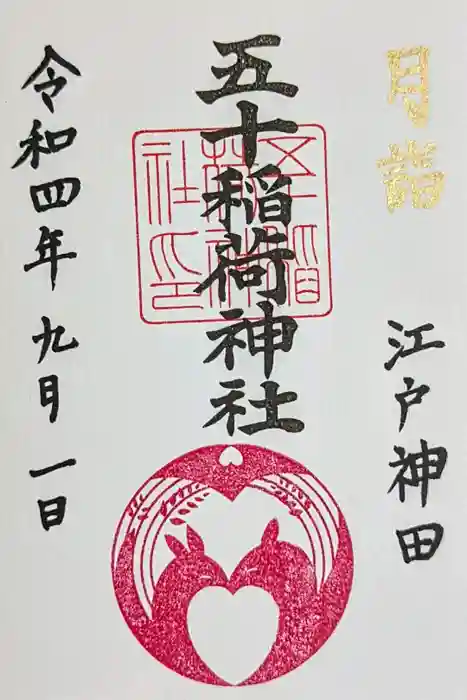 月詣
江戸神田
五十稲荷神社
令和四年九月一日